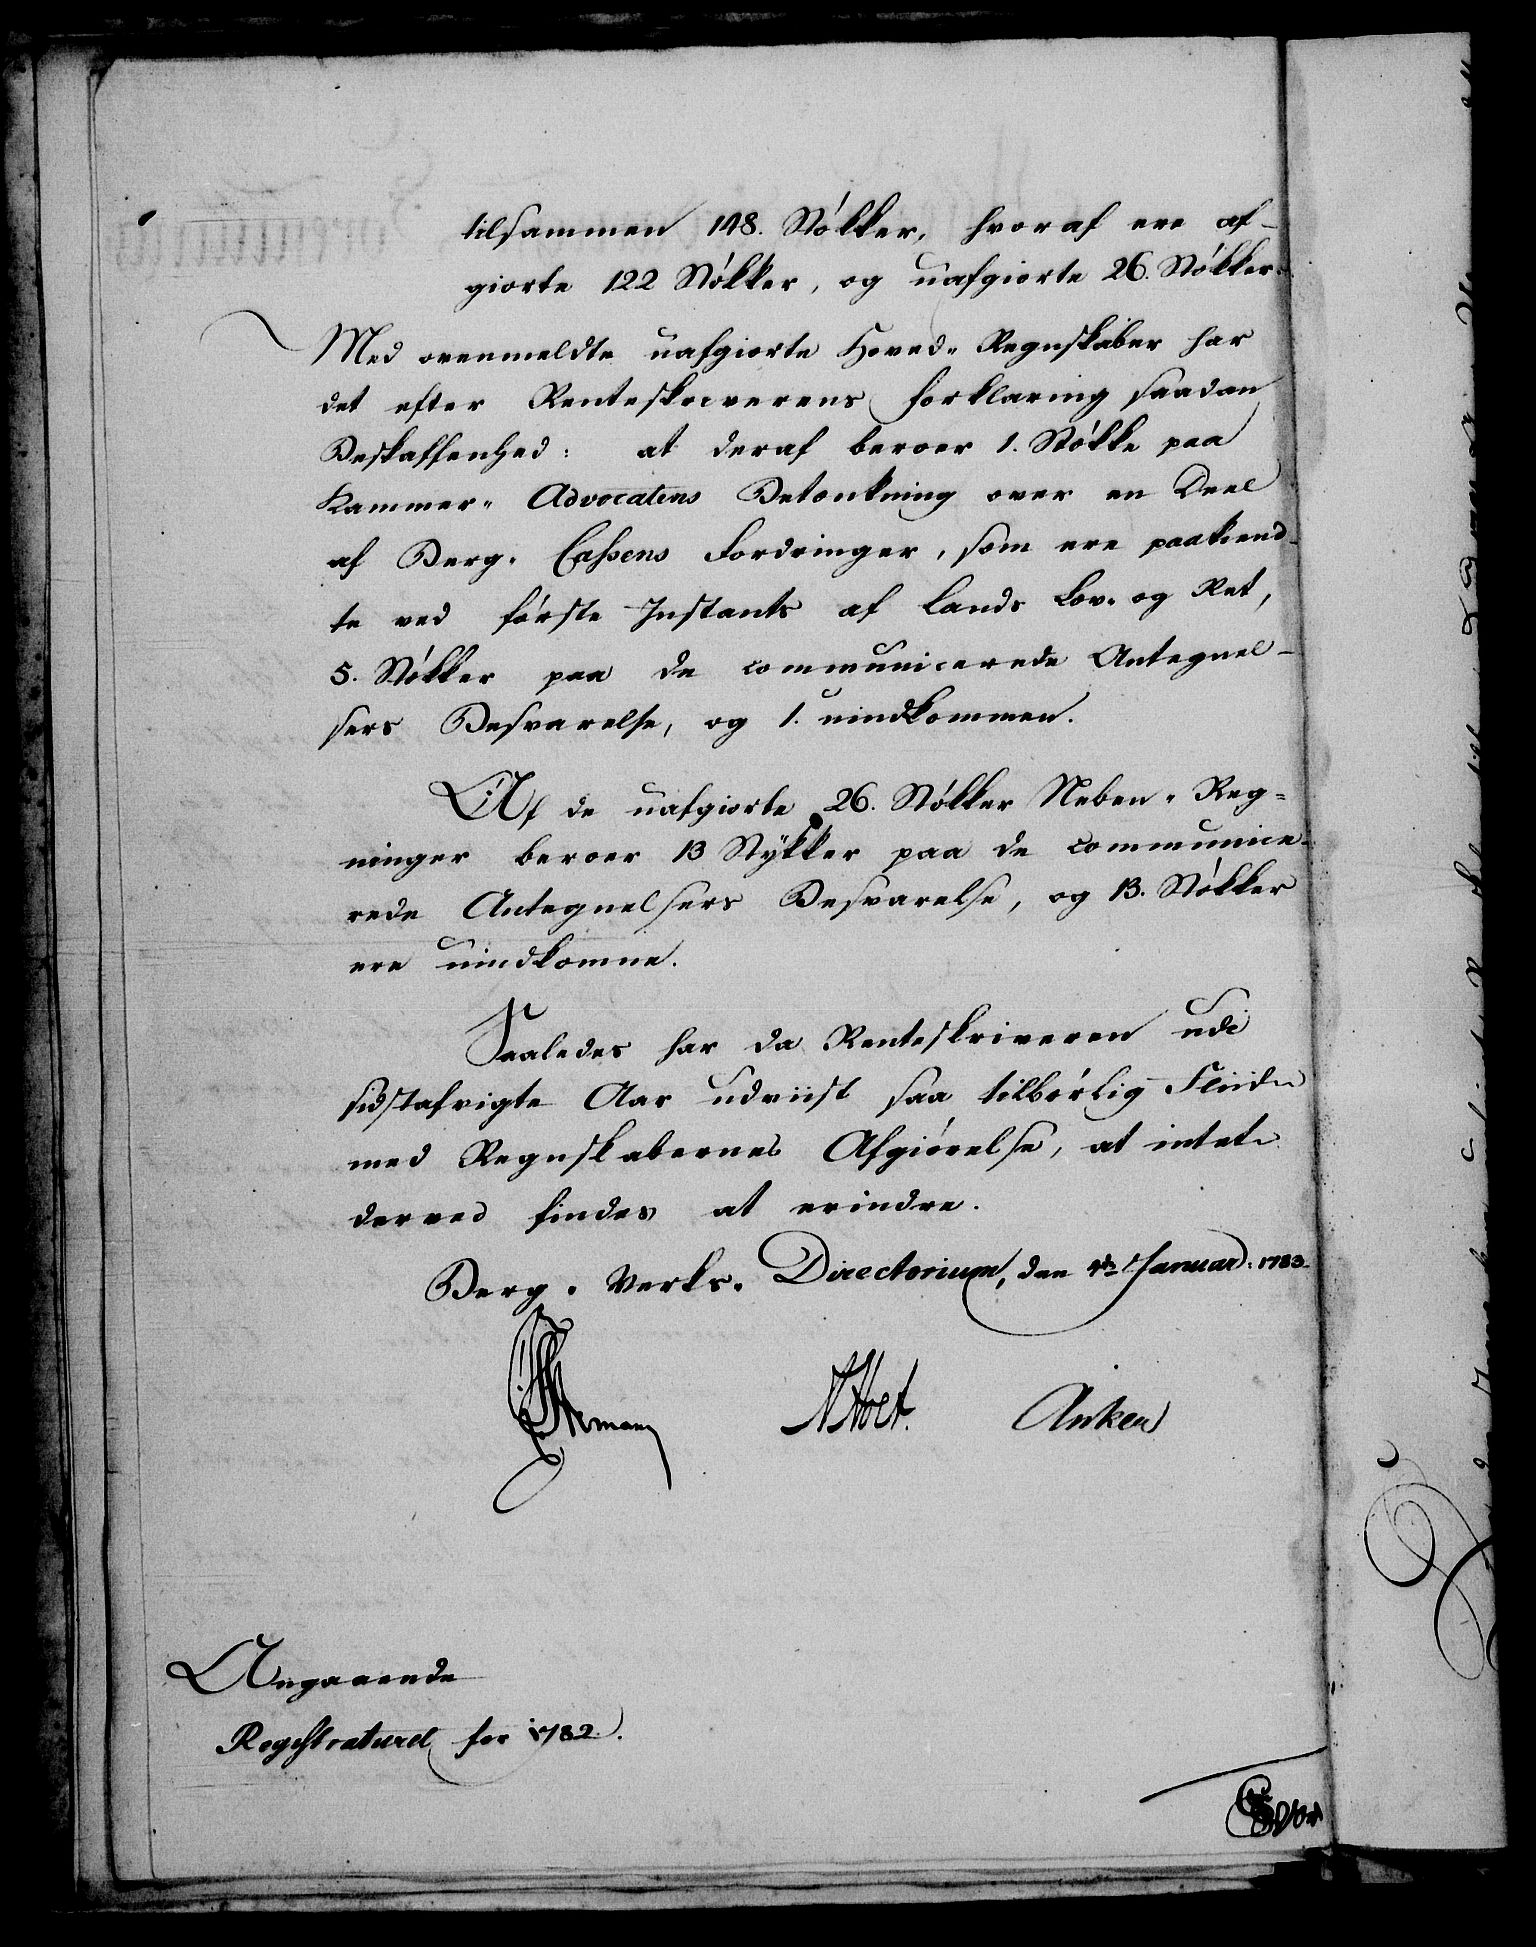 tilsammen 148. Støkker, hvoraf ere af-
giorte 122 Støkker, og uafgiorte 26. Støkker.
Med ovenmeldte uafgiorte Hoved-Regnskaber har
det efter Renteskriverens forklaring saadan
Beskaffenhed: at deraf beroer 1. Støkke paa
Kammer-Advocatens Betænkning over en Deel
af Berg-Cassens Fordringer, som ere paakiend-
te ved første Instants af Lands Lov-og Ret,
5. Støkker paa de communicerede Antegnel-
sers Besvarelse, og 1. uindkommen.
Af de uafgiorte 26. Støkker Neben-Reg-
ninger beroer 13 Stykker paa de communice-
rede Antegnelsers Besvarelse, og 13. Støkker
ere uindkomne.
Saaledes har da Renteskriveren udi
sidstafvigte Aar udviist saa tilbørlig Fliid
med Regnskabernes Afgiørelse, at intet
derved findes at erindre.
Berg-Verks-Directorium, den 4de Januar: 1783.
NHolt. Anker
Angaaende
Registraturet for 1782.